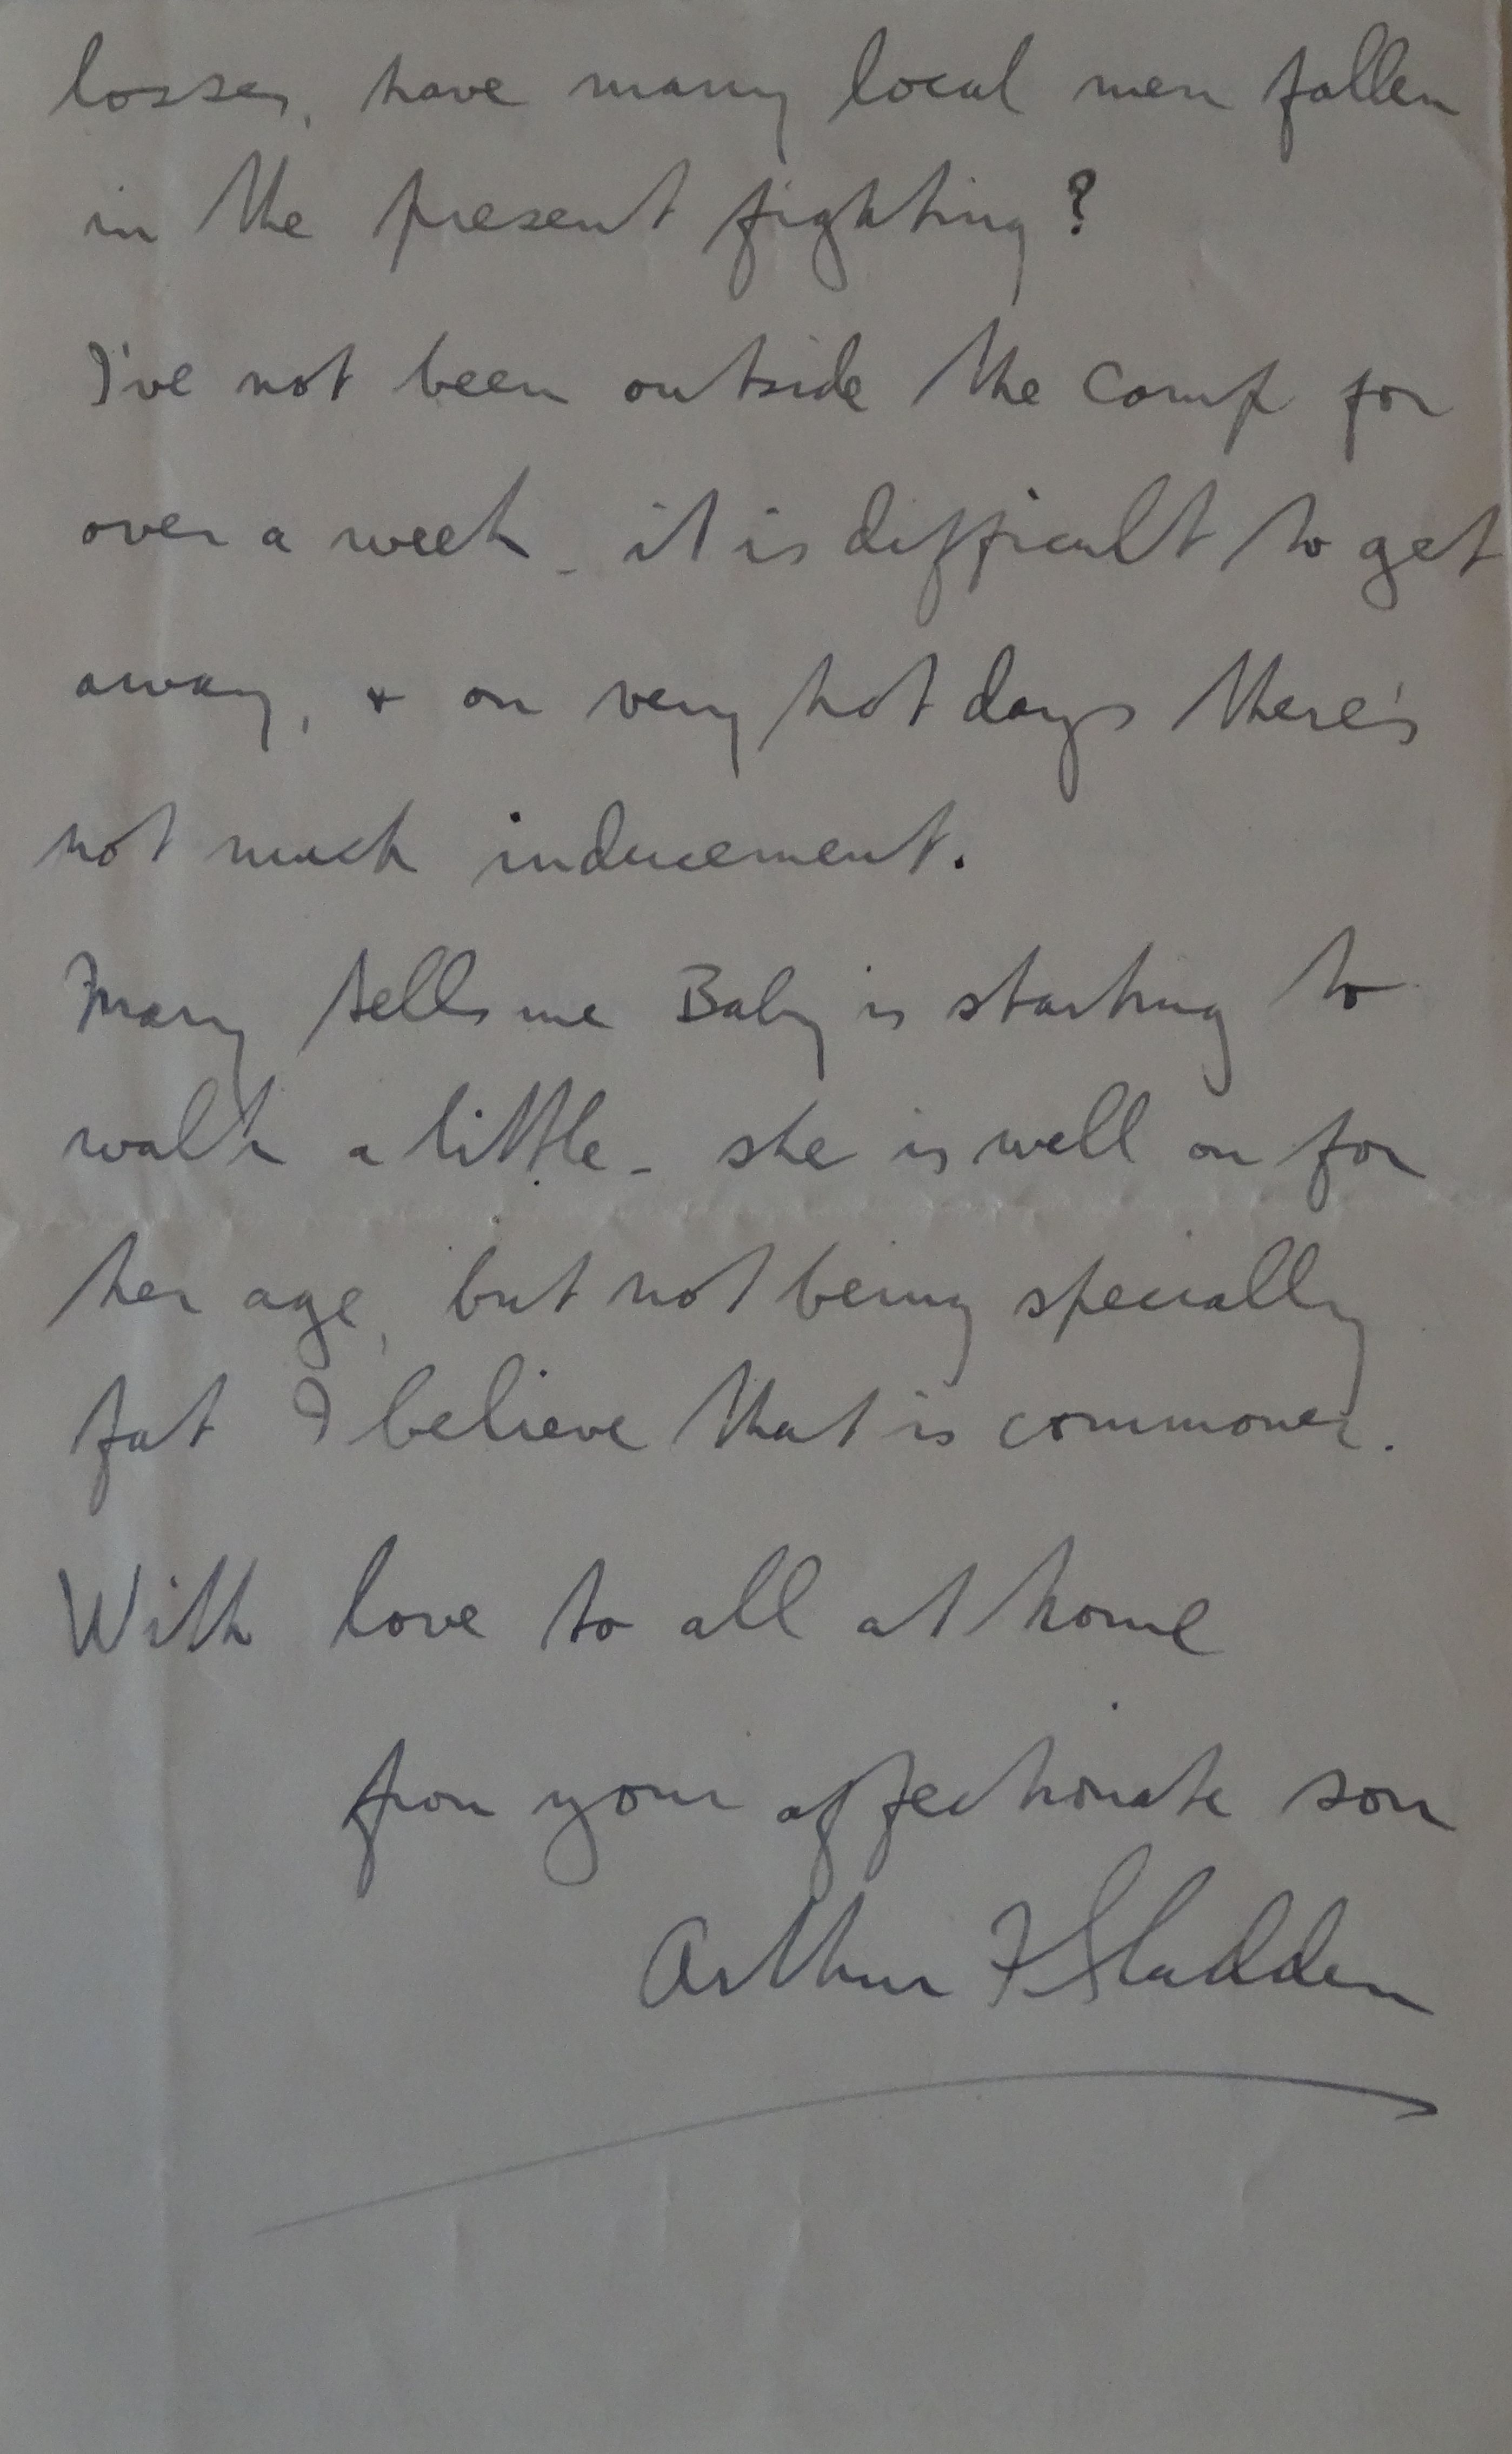 losses, have many local men fallen
in the present fighting?
I've not been outside the camp for
over a week - it is difficult to get
away, & on very hot days there's
not much inducement.
Mary tells me Baby is starting to
walk a little - she is well on for
her age, but not being specially
fat I believe that is commoner.
With love to all at home
from your affectionate son
Arthur F Sladden